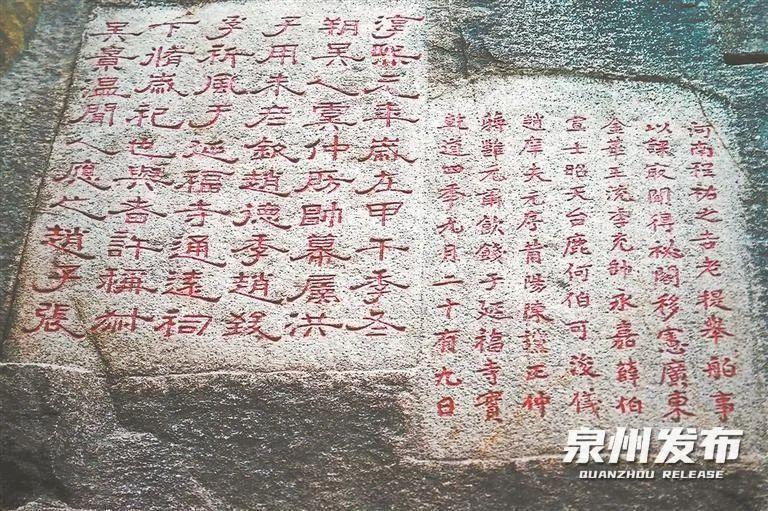 河南程祐之吉老提舉舶事
以課最聞得祕閣移憲廣東
金華王流季充帥永嘉薛伯
宣士昭天台鹿何伯可浚儀
趙庠夫元序莆陽陳讜正仲
蔣雝元肅飲餞于延福寺實
乾道四季九月二十有九日
淳熙元年歲在甲午季冬
朔吳人虞仲房帥幕屬洪
子用朱彦叙趙德季趙致
孚祈風于延福寺通遠祠
下脩歲祀也與者許稱叔
王賓温聞人應之趙子張
泉州发布
QUANZHOU RELEASE